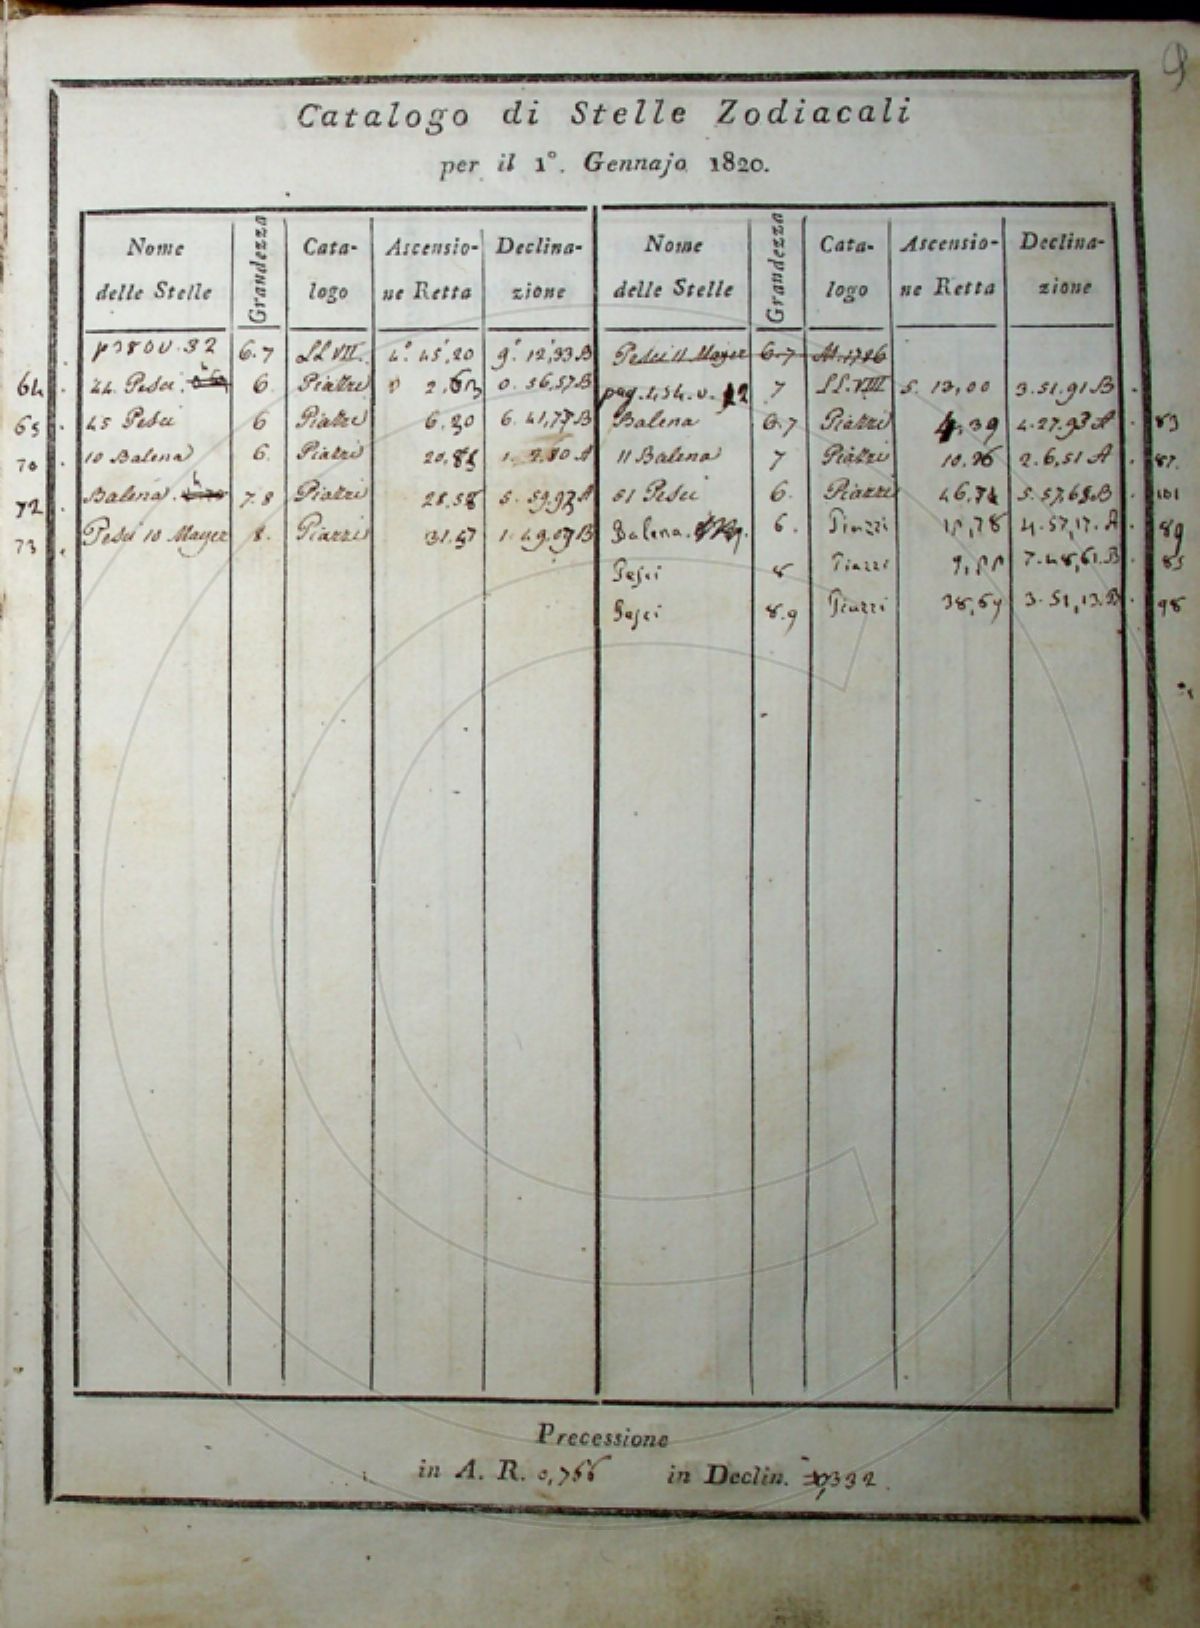 9
Catalogo di Stelle Zodiacali
per il 1°. Gennajo 1820.
Nome delle Stelle Grandezza Cata- logo Ascensio- ne Retta Declina- zione Nome delle Stelle Grandezza Cata- logo Ascensio- ne Retta Declina- zione
p380 v. 32 6.7 LL VII. 4°. 45',20 9°. 12',33 B Pesci 11 Mayer 6.7 M. 1786
64 44. Pesci 6. Piazzi 2, 0. 56,57 B pag. 454. v. 12 7 LL. VIII 5. 13,00 3. 51. 91 B
65 45 Pesci 6 Piazzi 6,20 6. 41,77 B Balena 6.7 Piazzi 4,39 4. 27,93 A 83
70 10 Balena 6. Piazzi 20,85 1. A 11 Balena 7 Piazzi 10,26 2. 6,51 A 87.
72 Balena 7.8 Piazzi 28,58 5. 59,92 A 51 Pesci 6. Piazzi 46,71 5. 57,68 B 101
73 Pesci 10 Mayer 8. Piazzi 31,57 1. 49,07 B Balena. 6. Piazzi 15,78 4. 57,17. A 89
Pesci 8 Piazzi 9,55 7. 48,61. B 85
Pesci 8.9 Piazzi 38,69 3. 51,13. B 98
Precessione
in A. R. 0,766 in Declin. 332